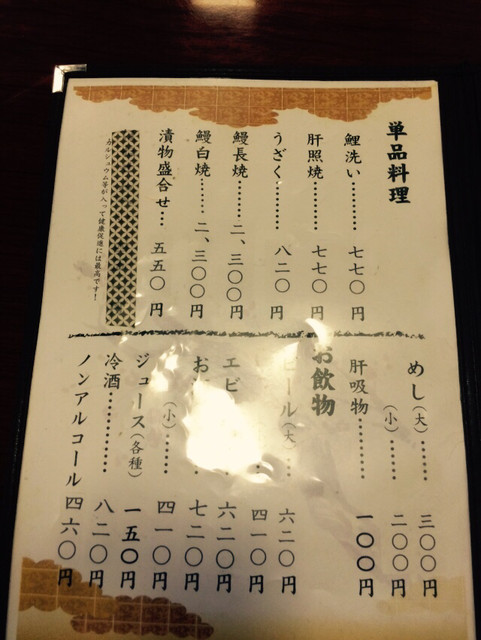 単品料理
鯉洗い………… 七七〇円
肝照焼………… 七七〇円
うざく………… 八二〇円
鰻長焼……… 二、三〇〇円
鰻白焼…… 二、三〇〇円
漬物盛合せ… 五五〇円
カルシュウム等が入って健康促進には最高です!
めし(大)…… 三〇〇円
(小)…… 二〇〇円
肝吸物………… 一〇〇円
お飲物
ビール(大)… 六二〇円
四一〇円
エビ 六二〇円
お 七二〇円
(小)… 四一〇円
ジュース(各種) 一五〇円
冷酒………… 八二〇円
ノンアルコール 四六〇円